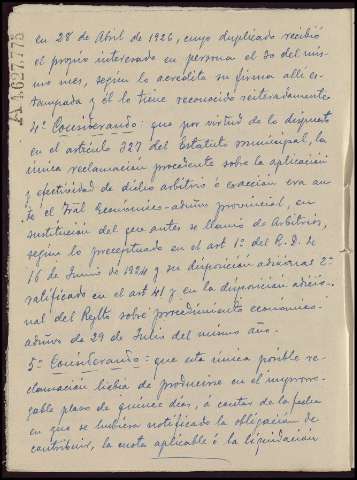 A1.627.773
en 28 de Abril de 1926, cuyo duplicado recibió
el propio interesado en persona el 30 del mis-
mo mes, según lo acredita su firma allí es-
tampada y él lo tiene reconocido reiteradamente
4º Considerando: que por virtud de lo dispuesto
en el artículo 327 del Estatuto municipal, la
única reclamación procedente sobre la aplicación
y efectividad de dicho arbitrio o exacción era an-
te el Tral Económico-admvo provincial, en
sustitución del que antes se llamó de Arbitrios,
según lo preceptuado en el art 1º del R. D. de
16 de Junio de 1924 y su disposición adicional 2ª
ratificado en el art 41 y en la disposición adicio-
nal del Regltº sobre procedimiento económico-
admvo de 29 de Julio del mismo año.
5º Considerando: que esta única posible re-
clamación había de producirse en el improrro-
gable plazo de quince días, á contar de la fecha
en que se hubiera notificado la obligación de
contribuir, la cuota aplicable ó la liquidación